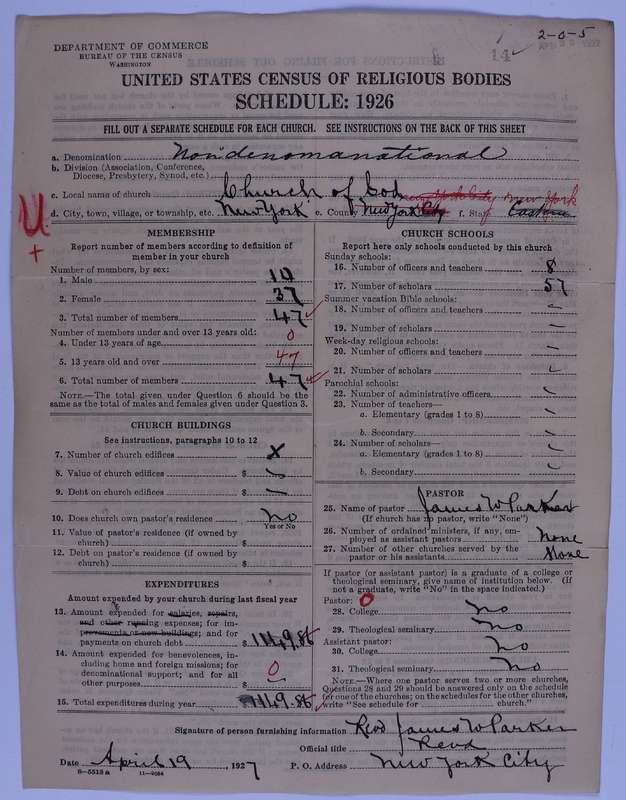 2-0-5
14
DEPARTMENT OF COMMERCE
BUREAU OF THE CENSUS
WASHINGTON
UNITED STATES CENSUS OF RELIGIOUS BODIES
SCHEDULE: 1926
FILL OUT A SEPARATE SCHEDULE FOR EACH CHURCH. SEE INSTRUCTIONS ON THE BACK OF THIS SHEET
a. Denomination Nondenomanational
b. Division (Association, Conference, Diocese, Presbytery, Synod, etc.)
c. Local name of church Church of God
New York City New York
d. City, town, village, or township, etc. New York e. County New York City f. State Eastern
U
+
MEMBERSHIP
Report number of members according to definition of
member in your church
Number of members, by sex:
1. Male 10
2. Female 37
3. Total number of members 47
Number of members under and over 13 years old:
4. Under 13 years of age 0
5. 13 years old and over 47
6. Total number of members 47
NOTE.—The total given under Question 6 should be the
same as the total of males and females given under Question 3.
CHURCH BUILDINGS
See instructions, paragraphs 10 to 12
7. Number of church edifices x
8. Value of church edifices $ —
9. Debt on church edifices $ —
10. Does church own pastor's residence No
Yes or No
11. Value of pastor's residence (if owned by
church) $
12. Debt on pastor's residence (if owned by
church) $
EXPENDITURES
Amount expended by your church during last fiscal year
13. Amount expended for salaries, repairs,
and other running expenses; for im-
provements or new buildings; and for
payments on church debt $ 1149.86
14. Amount expended for benevolences, in-
cluding home and foreign missions; for
denominational support; and for all
other purposes $ 0
15. Total expenditures during year $ 1149.86
CHURCH SCHOOLS
Report here only schools conducted by this church
Sunday schools:
16. Number of officers and teachers 8
17. Number of scholars 57
Summer vacation Bible schools:
18. Number of officers and teachers —
19. Number of scholars —
Week-day religious schools:
20. Number of officers and teachers —
21. Number of scholars —
Parochial schools:
22. Number of administrative officers —
23. Number of teachers—
a. Elementary (grades 1 to 8) —
b. Secondary —
24. Number of scholars—
a. Elementary (grades 1 to 8) —
b. Secondary —
PASTOR
25. Name of pastor James W Parker
(If church has no pastor, write "None")
26. Number of ordained ministers, if any, em-
ployed as assistant pastors None
27. Number of other churches served by the
pastor or his assistants None
If pastor (or assistant pastor) is a graduate of a college or
theological seminary, give name of institution below. (If
not a graduate, write "No" in the space indicated.)
Pastor: 0
28. College No
29. Theological seminary No
Assistant pastor:
30. College No
31. Theological seminary No
NOTE.—Where one pastor serves two or more churches,
Questions 28 and 29 should be answered only on the schedule
for one of the churches; on the schedules for the other churches,
write "See schedule for church."
Signature of person furnishing information Rev James W Parker
Official title Revd
Date April 19, 1927 P. O. Address New York City
8-5513 a 11-9554